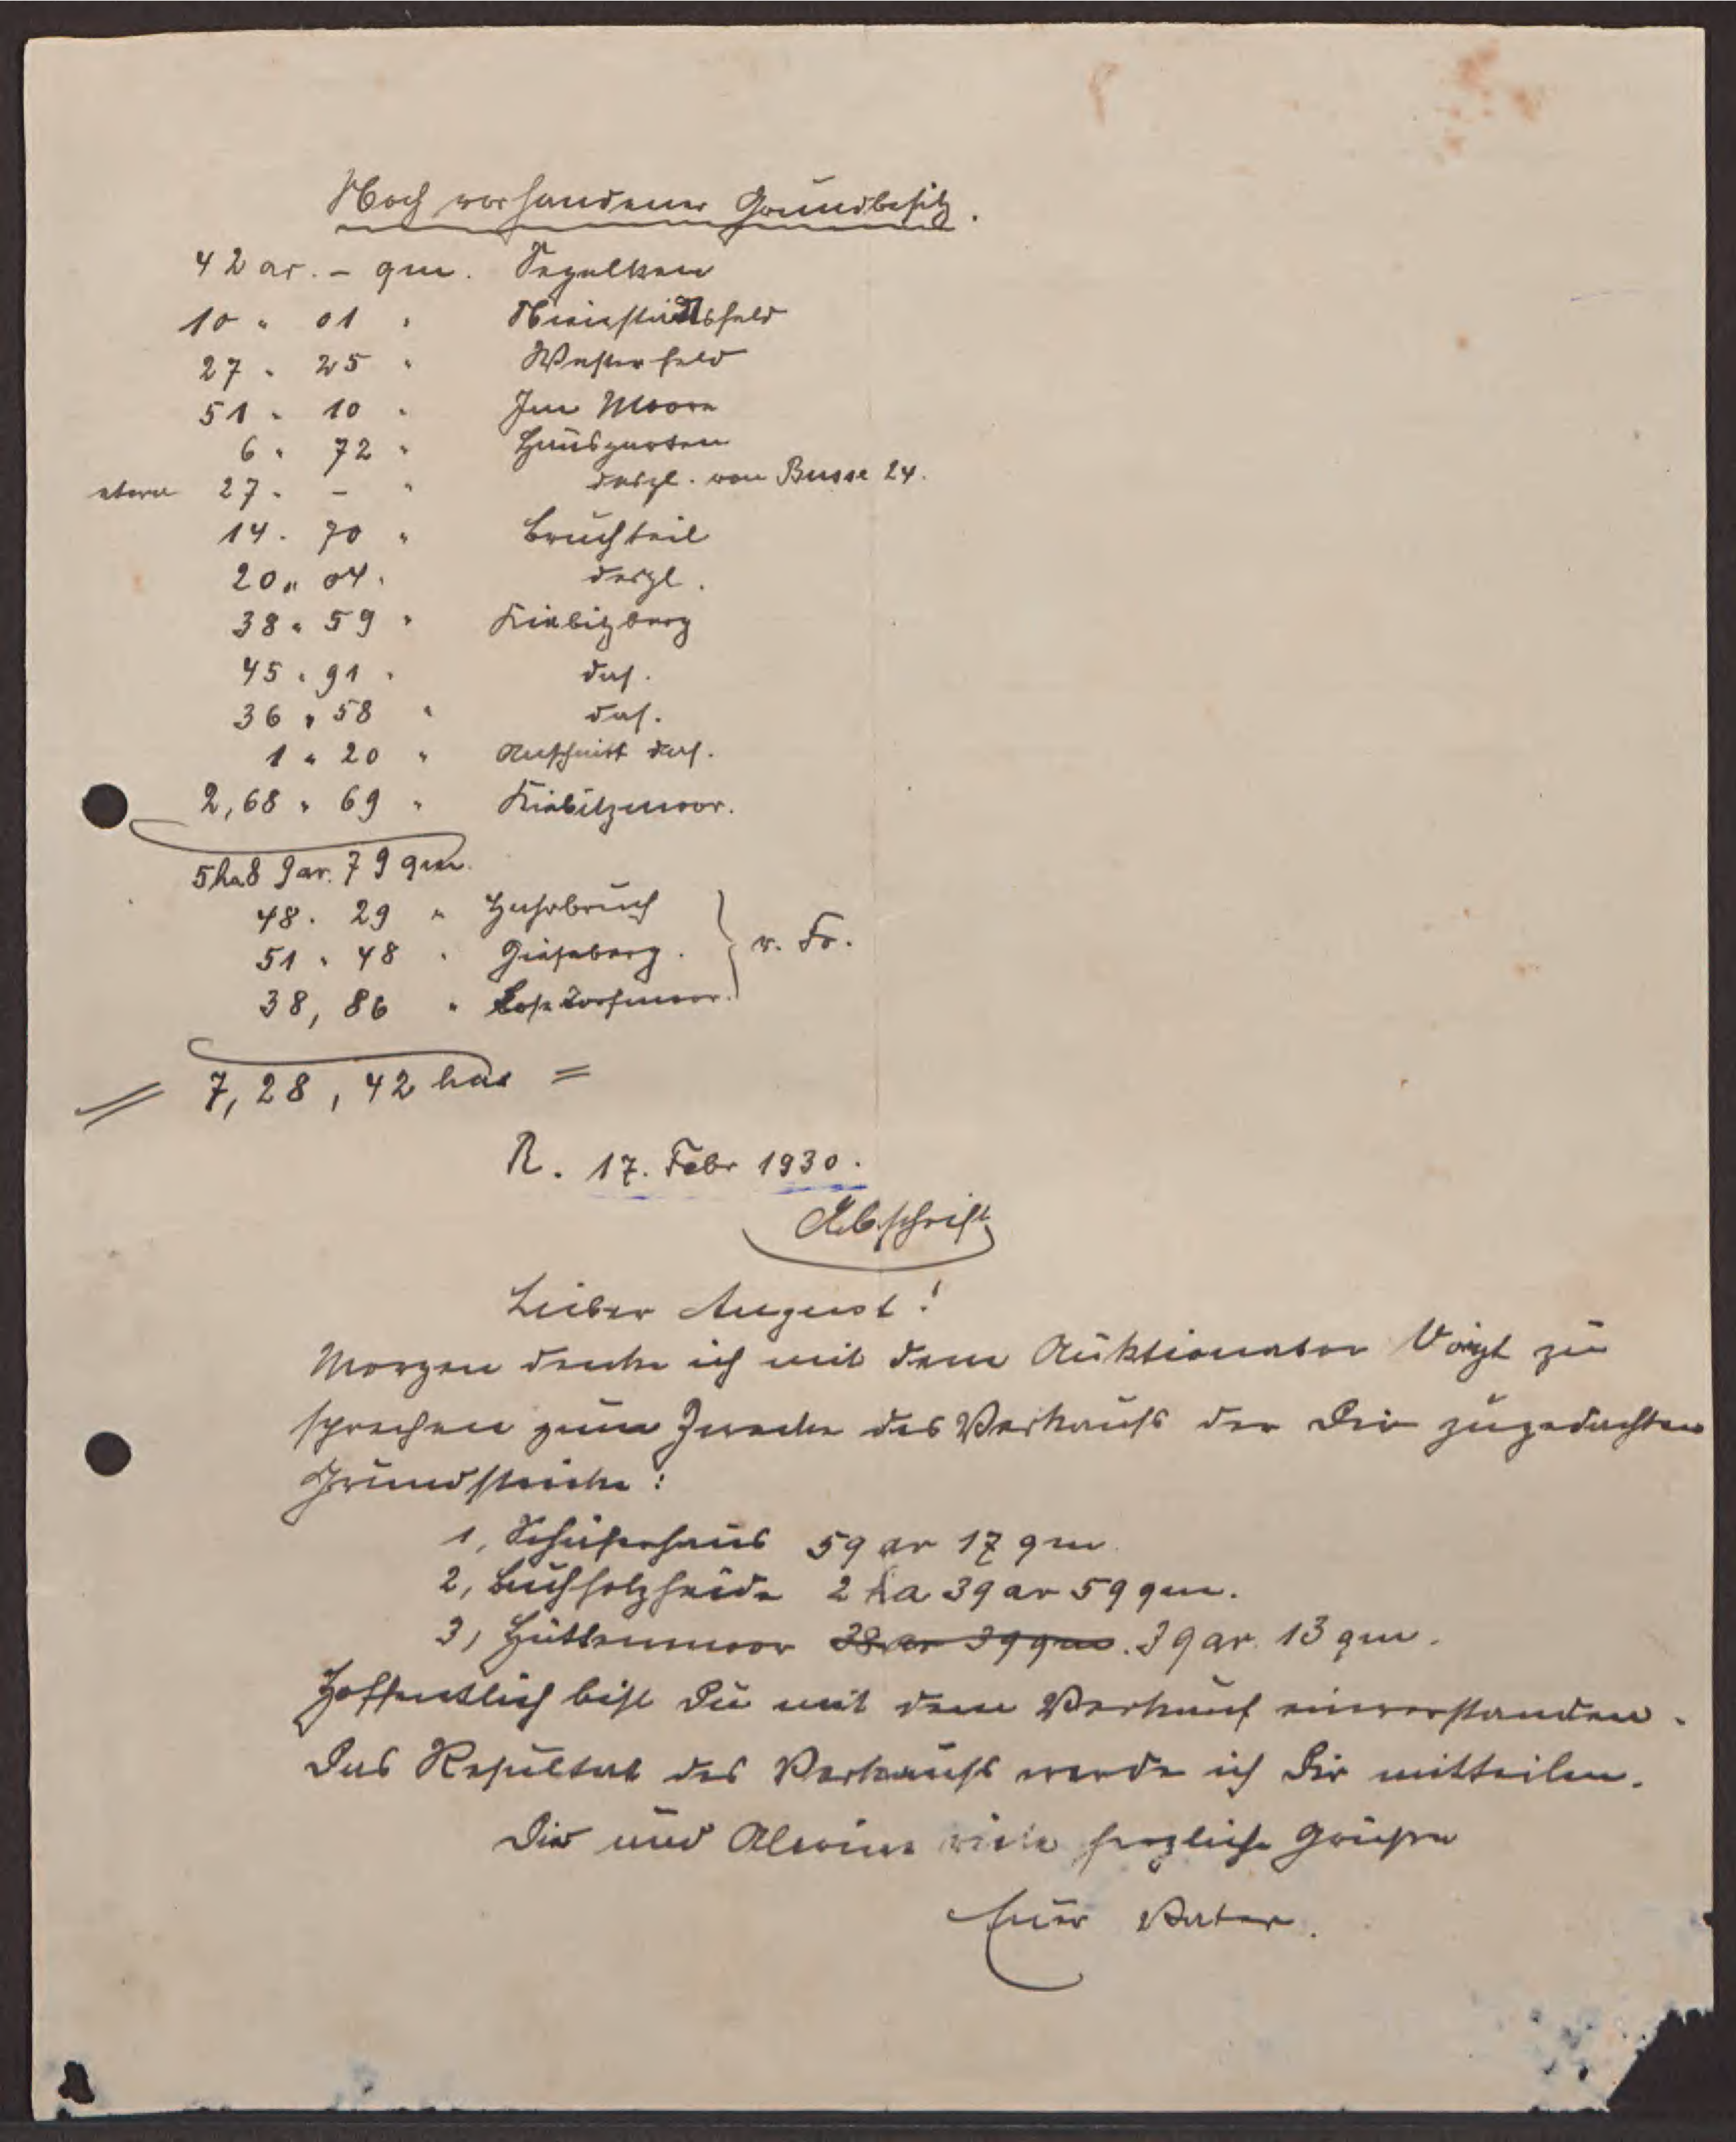 Noch vorhandener Grundbesitz.
42 ar. – qm. Segelken
10 " 01 "
27 " 25 " Westerfeld
51 " 10 " Im Moore
6 " 72 " Hausgarten
etwa 27 " – " desgl. von Busse 24.
14 " 70 " Bruchteil
20 " 04 " desgl.
38 " 59 " Kiebitzberg
45 " 91 " das.
36 " 58 " das.
1 " 20 " Anschnitt das.
2,68 " 69 " Kiebitzmoor.
5 ha 89 ar. 79 qm.
48 " 29 " Hassbruch
51 " 48 " Gieseberg. } v. Fr.
38, 86 " Lose Torfmoor.
= 7, 28, 42 ha =
R. 17. Febr 1930.
Abschrift
Lieber August!
Morgen denke ich mit dem Auktionator Voigt zu
sprechen zum Zwecke des Verkaufs der Dir zugedachten
Grundstücke:
1, Schäferhaus 59 ar 17 qm
2, Buchholzheide 2 ha 39 ar 59 qm.
3, Hüttenmoor 38 ar 39 qm. 39 ar. 13 qm.
Hoffentlich bist Du mit dem Verkauf einverstanden.
Das Resultat des Verkaufs werde ich Dir mitteilen.
Dir und Alwine viele herzliche Grüße
Euer Vater.